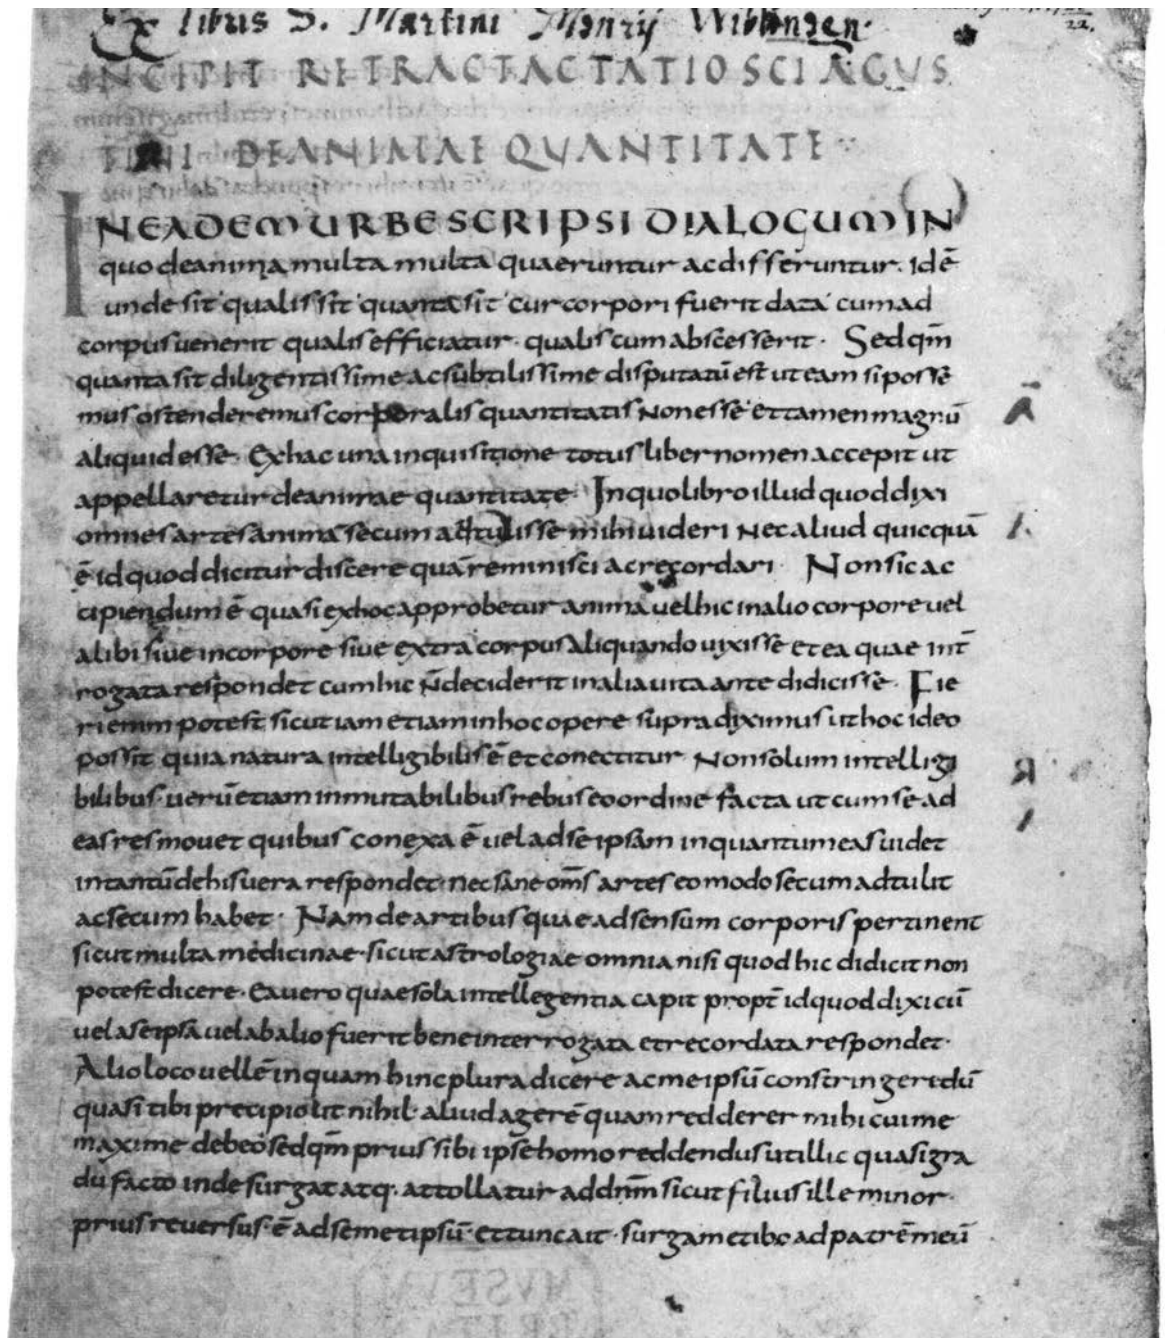 Ex libris S. Martini Monrij Wiblingen.
22.
INCIPIT RETRACTACTATIO SCI AGUS
TINI DE ANIMAE QUANTITATE
IN EADEM URBE SCRIPSI DIALOGUM IN
quo de anima multa multa quaeruntur ac disseruntur. id ē
unde sit qualis sit quanta sit cur corpori fuerit data cum ad
corpus uenerit qualis efficiatur. qualis cum abscesserit. Sed qm̄
quanta sit diligentissime ac subtilissime disputatū est ut eam si posse
mus ostenderemus corporalis quantitatis Non esse et tamen magnū
aliquid esse. Ex hac una inquisitione totus liber nomen accepit ut
appellaretur de animae quantitate. In quo libro illud quod dixi
omnes artes anima secum adtulisse mihi uideri Nec aliud quicquā
ē id quod dicitur discere quā reminisci ac recordari. Non sic ac
cipiendum ē quasi ex hoc approbetur anima uel hic in alio corpore uel
alibi siue in corpore siue extra corpus aliquando uixisse et ea quae int̄
rogata respondet cum hic n̄ deciderit in alia uita ante didicisse. Fie
ri enim potest sicut iam etiam in hoc opere supra diximus ut hoc ideo
possit quia natura intelligibilis ē et conectitur Non solum intelligi
bilibus. uerū etiam inmutabilibus rebus eo ordine facta ut cum se ad
eas res mouet quibus conexa ē uel ad se ipsam in quantum eas uidet
in tantū de his uera respondet. nec sane om̄s artes eo modo secum adtulit
ac secum habet. Nam de artibus quae ad sensum corporis pertinent
sicut multa medicinae. sicut astrologiae omnia nisi quod hic didicit non
potest dicere. Ea uero quae sola intellegentia capit propt̄ id quod dixi cū
uel a se ipsa uel ab alio fuerit bene interrogata et recordata respondet.
Alio loco uellē inquam hinc plura dicere ac me ipsū constringere dū
quasi tibi precipio ut nihil. aliud agerē quam redderer mihi cui me
maxime debeo. sed qm̄ prius sibi ipse homo reddendus ut illic quasi gra
du facto inde surgat atq. attollatur ad dn̄m sicut filius ille minor.
prius reuersus. ē ad semetipsū. et tunc ait. surgam et ibo ad patrē meū
MUSEUM